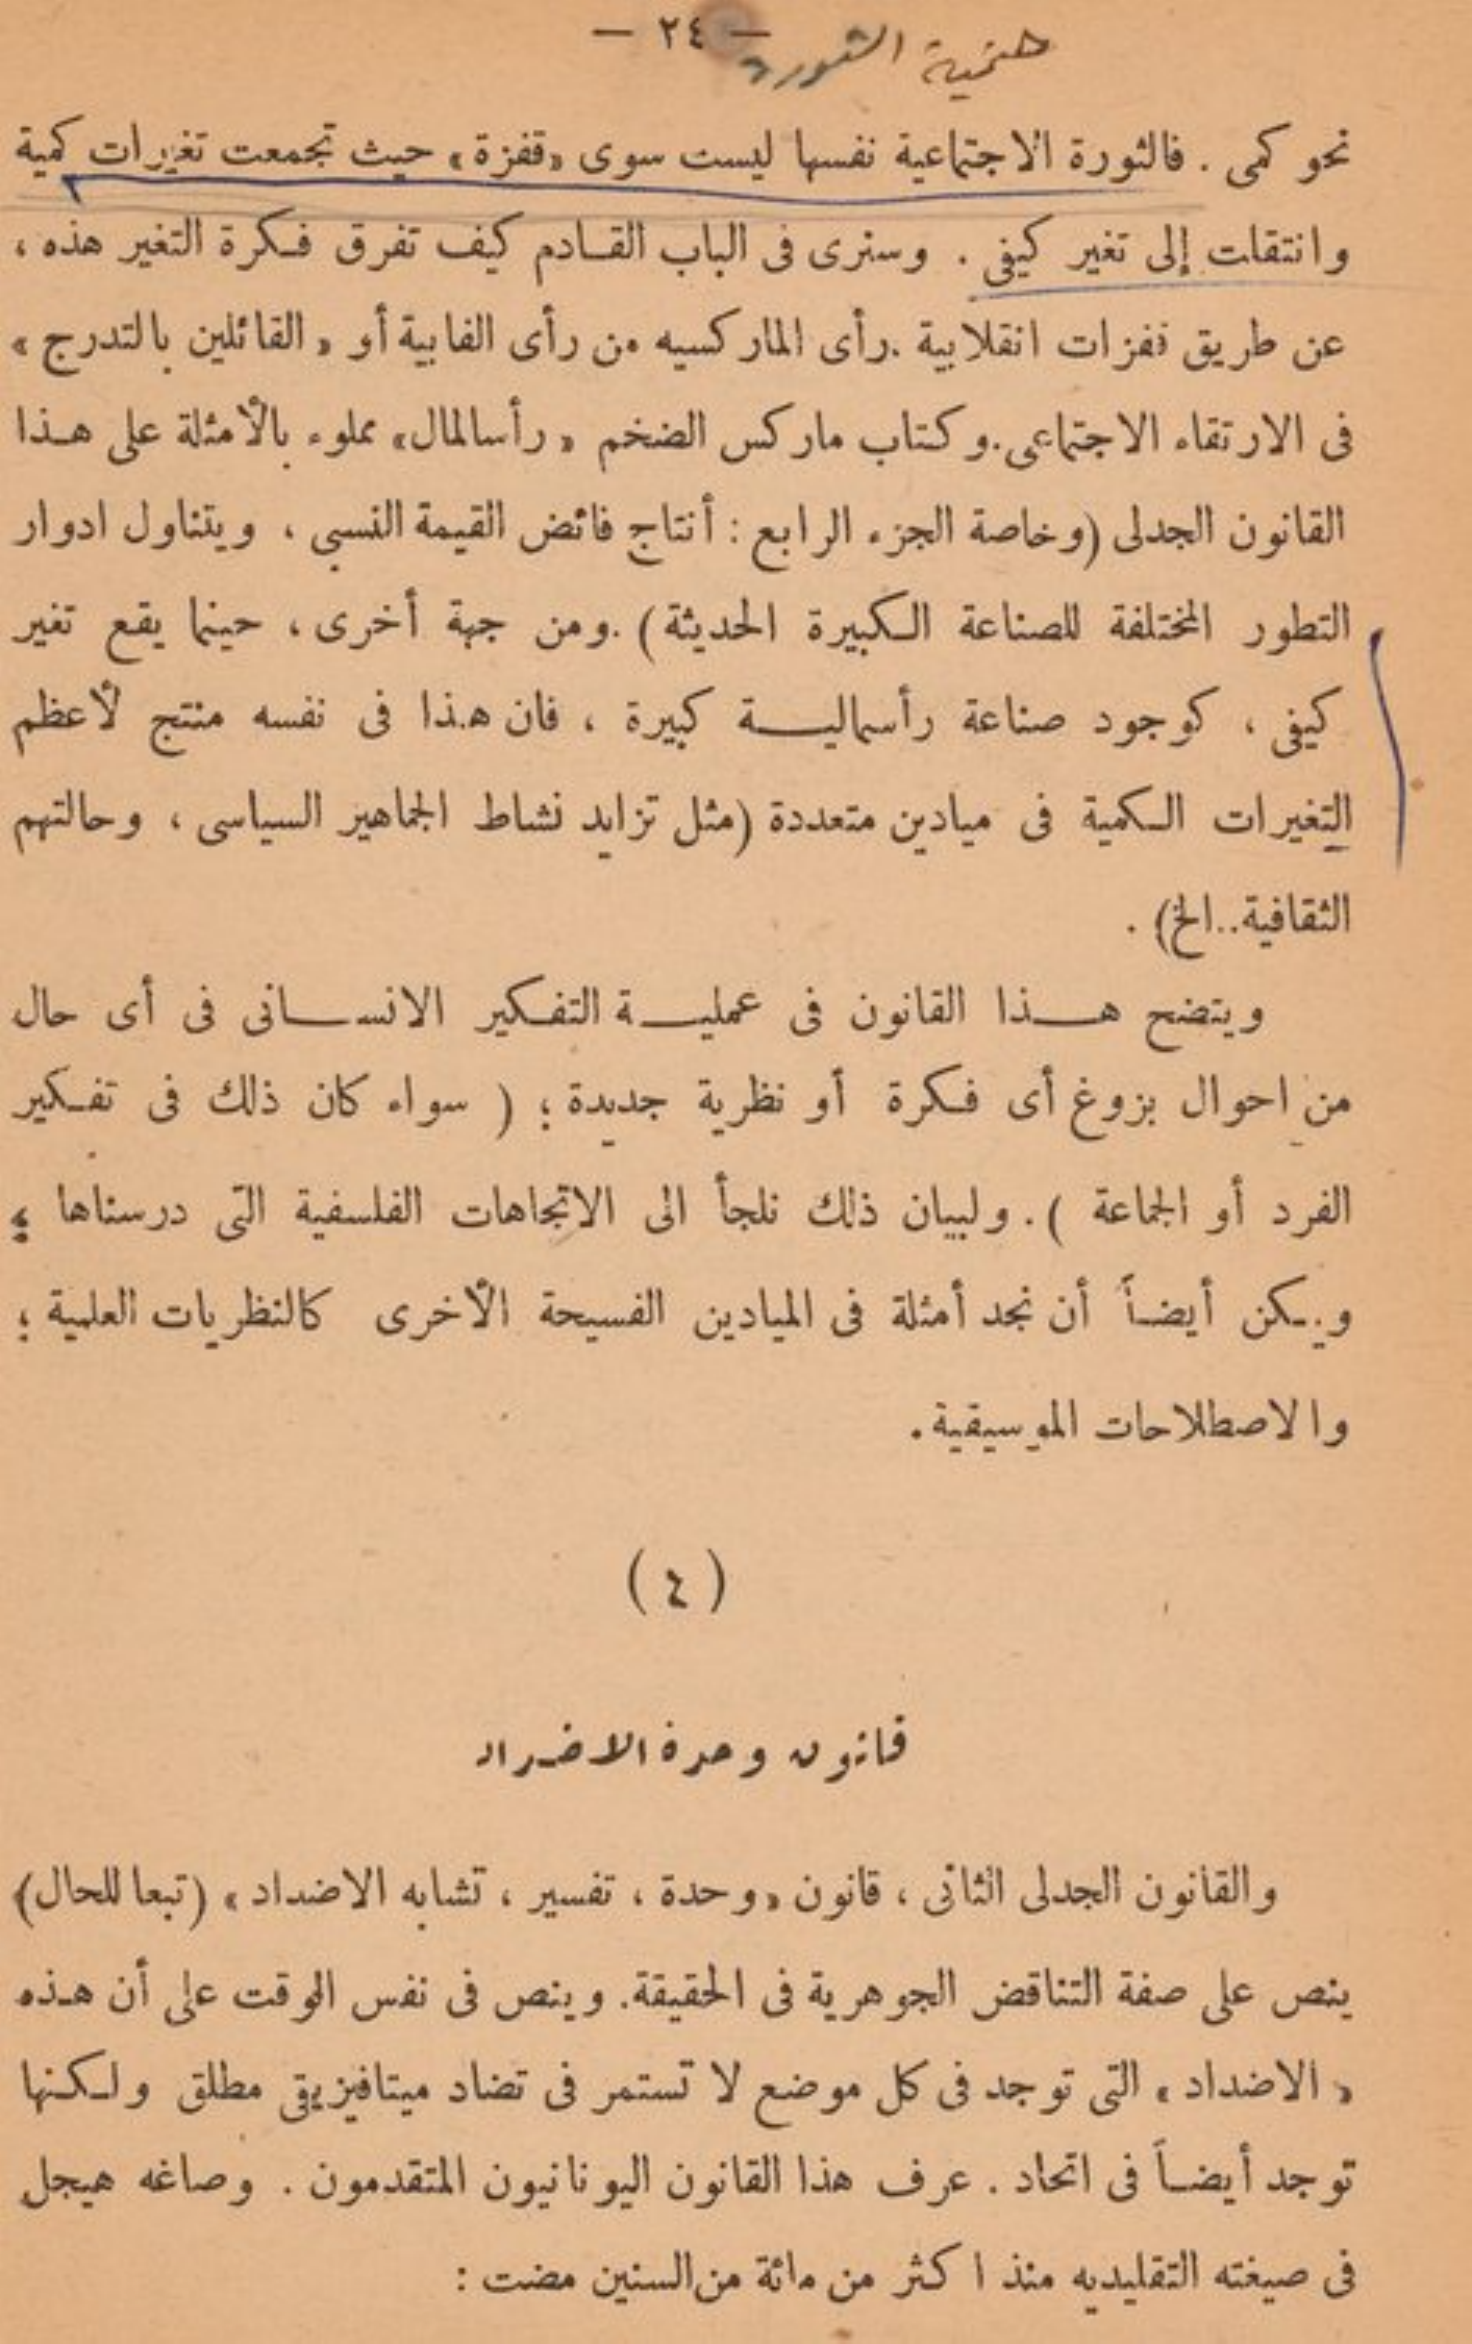 — ٢٤ —
حتمية الثورة
نحو كمى . فالثورة الاجتماعية نفسها ليست سوى «قفزة» حيث تجمعت تغيرات كمية
وانتقلت إلى تغير كيفى . وسنرى فى الباب القادم كيف تفرق فكرة التغير هذه ،
عن طريق قفزات انقلابية .رأى الماركسيه من رأى الفابية أو «القائلين بالتدرج»
فى الارتقاء الاجتماعى.وكتاب ماركس الضخم «رأسالمال» مملوء بالأمثلة على هذا
القانون الجدلى (وخاصة الجزء الرابع : أنتاج فائض القيمة النسبى ، ويتناول ادوار
التطور المختلفة للصناعة الكبيرة الحديثة) .ومن جهة أخرى ، حينما يقع تغير
كيفى ، كوجود صناعة رأسمالية كبيرة ، فان هذا فى نفسه منتج لأعظم
التغيرات الكمية فى ميادين متعددة (مثل تزايد نشاط الجماهير السياسى ، وحالتهم
الثقافية..الخ) .
ويتضح هذا القانون فى عملية التفكير الانسانى فى أى حال
من احوال بزوغ أى فكرة أو نظرية جديدة ؛ ( سواء كان ذلك فى تفكير
الفرد أو الجماعة ) . ولبيان ذلك نلجأ الى الاتجاهات الفلسفية التى درسناها ؛
ويمكن أيضاً أن نجد أمثلة فى الميادين الفسيحة الأخرى كالنظريات العلمية ؛
والاصطلاحات الموسيقية .
(٤)
قانون وحدة الاضداد
والقانون الجدلى الثانى ، قانون «وحدة ، تفسير ، تشابه الاضداد» (تبعا للحال)
ينص على صفة التناقض الجوهرية فى الحقيقة. وينص فى نفس الوقت على أن هذه
«الاضداد» التى توجد فى كل موضع لا تستمر فى تضاد ميتافيزيقى مطلق ولكنها
توجد أيضاً فى اتحاد . عرف هذا القانون اليونانيون المتقدمون . وصاغه هيجل
فى صيغته التقليديه منذ اكثر من مائة من السنين مضت :